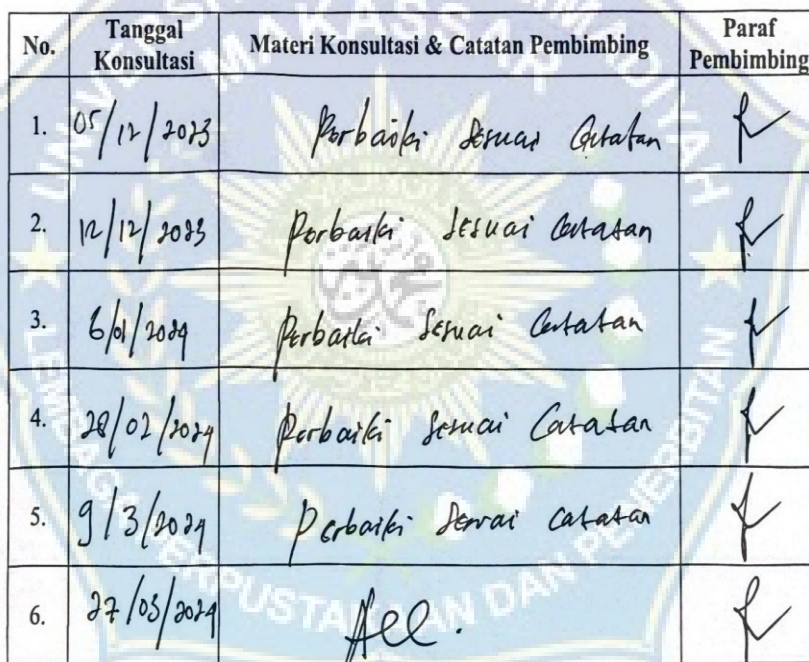 No. Tanggal Konsultasi Materi Konsultasi & Catatan Pembimbing Paraf Pembimbing
1. 05/12/2023 Perbaiki sesuai Catatan
2. 12/12/2023 Perbaiki sesuai Catatan
3. 6/01/2024 Perbaiki sesuai Catatan
4. 28/02/2024 Perbaiki sesuai Catatan
5. 9/3/2024 Perbaiki sesuai catatan
6. 27/03/2024 Acc.
MAKASSAR
LEMBAGA PERPUSTAKAAN DAN PENERBITAN